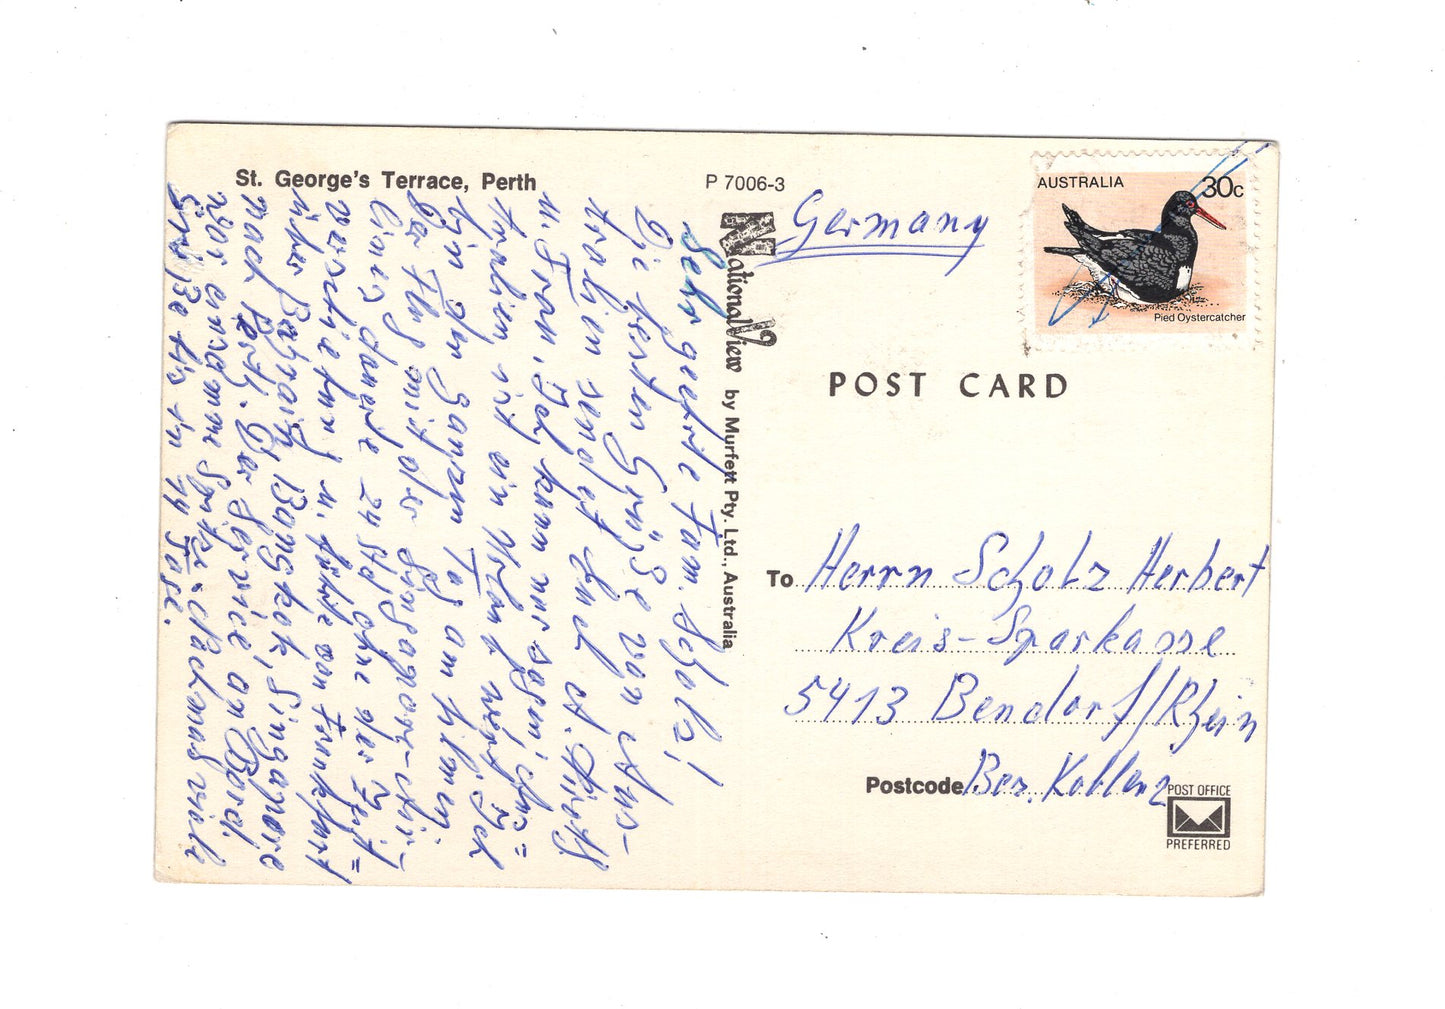 St. George's Terrace, Perth
P 7006-3
Sehr geehrte Fam. Scholz!
Die besten Grüße von Aus-
tralien sendet Euch A.
u. Frau. Ich kann nur sagen, Aus=
tralien ist ein Urlaub wert. Ich
bin den ganzen Tag am filmen.
Der Flug mit der Singapore-Air-
lines dauerte 24 Std. ohne der Zeit=
verschiebung u. führte von Frankfurt
über Bahrain, Bangkok, Singapore
nach Perth. Der Service an Bord.
war einsame Spitze. Nochmals viele
Grüße bis in 14 Tage.
NationalView by Murfett Pty. Ltd., Australia
Germany
AUSTRALIA 30c
Pied Oystercatcher
POST CARD
To Herrn Scholz Herbert
Kreis-Sparkasse
5413 Bendorf/Rhein
Postcode Bez. Koblenz
POST OFFICE
PREFERRED